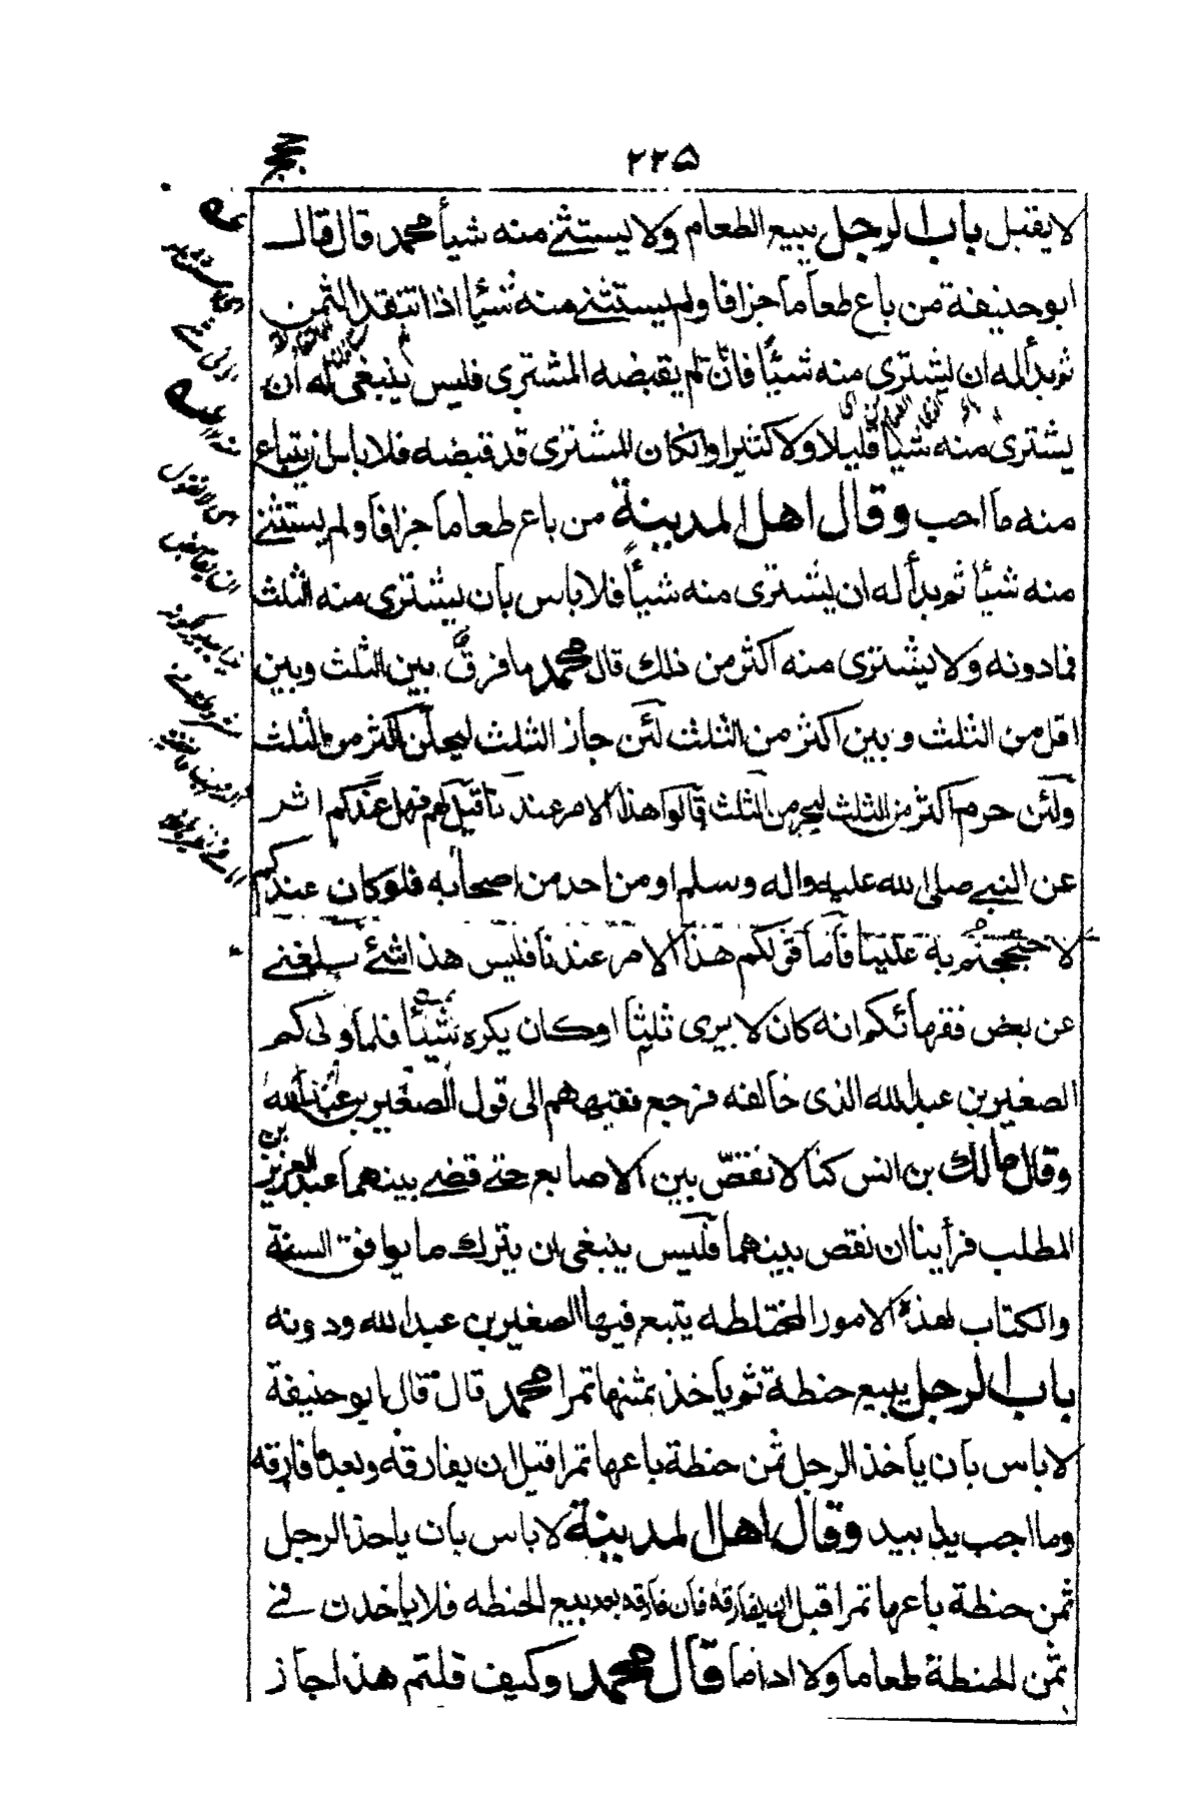 ٢٢٥
لا يقتبل باب الرجل يبيع الطعام ولا يستثنى منه شيأ محمد قال قال
ابو حنيفة من باع طعاما جزافا ولم يستثنى منه شيئا اذا انتقد الثمن
ثم بدأ له ان يشترى منه شيئا فان لم يقبضه المشترى فليس ينبغى له ان
يشترى منه شيأ قليلا ولا كثيرا وانكان المشترى قد قبضه فلا باس ان يبتاع
منه ما احب وقال اهل المدينة من باع طعاما جزافا ولم يستثنى
منه شيئا ثم بدأ له ان يشترى منه شيأ فلا باس بان يشترى منه الثلث
فمادونه ولا يشترى منه اكثر من ذلك قال محمد ما فرق بين الثلث وبين
اقل من الثلث وبين اكثر من الثلث لئن جاز الثلث ليحلن اكثر من الثلث
ولئن حرم اكثر من الثلث ليحرمن الثلث قالوا هذا الامر عندنا قيل لهم فهل عندكم اثر
عن النبي صلى الله عليه واله وسلم او من احد من اصحابه فلو كان عندكم
لاحتججتم به علينا فاما قولكم هذا الامر عندنا فليس هذا شئ بلغنى
عن بعض فقهائكم انه كان لا يرى ثلثا او كان يكره شيئا فلما ولى كم
الصغير بن عبد الله الذى خالفه فرجع فقيههم الى قول الصغير بن عبد الله
وقال مالك بن انس كنا لا نقص بين الاصابع حتى قضى بينهما عبد العزيز بن
المطلب فرأينا ان نقص بينهما فليس ينبغى ان يترك ما يوافق السنة
والكتاب لهذه الامور المختلطه يتبع فيها الصغير بن عبد الله ودونه
باب الرجل يبيع حنطة ثم ياخذ بثمنها تمرا محمد قال قال ابو حنيفة
لا باس بان ياخذ الرجل ثمن حنطة باعها تمرا قبل ان يفارقه وبعد ما فارقه
وما احب يدا بيد وقال اهل المدينة لا باس بان ياخذ الرجل
ثمن حنطة باعها تمرا قبل ان يفارقه فان فارقه بعد بيع الحنطه فلا ياخذن في
ثمن الحنطة طعاما ولا اداما قال محمد وكيف قلتم هذا جاز